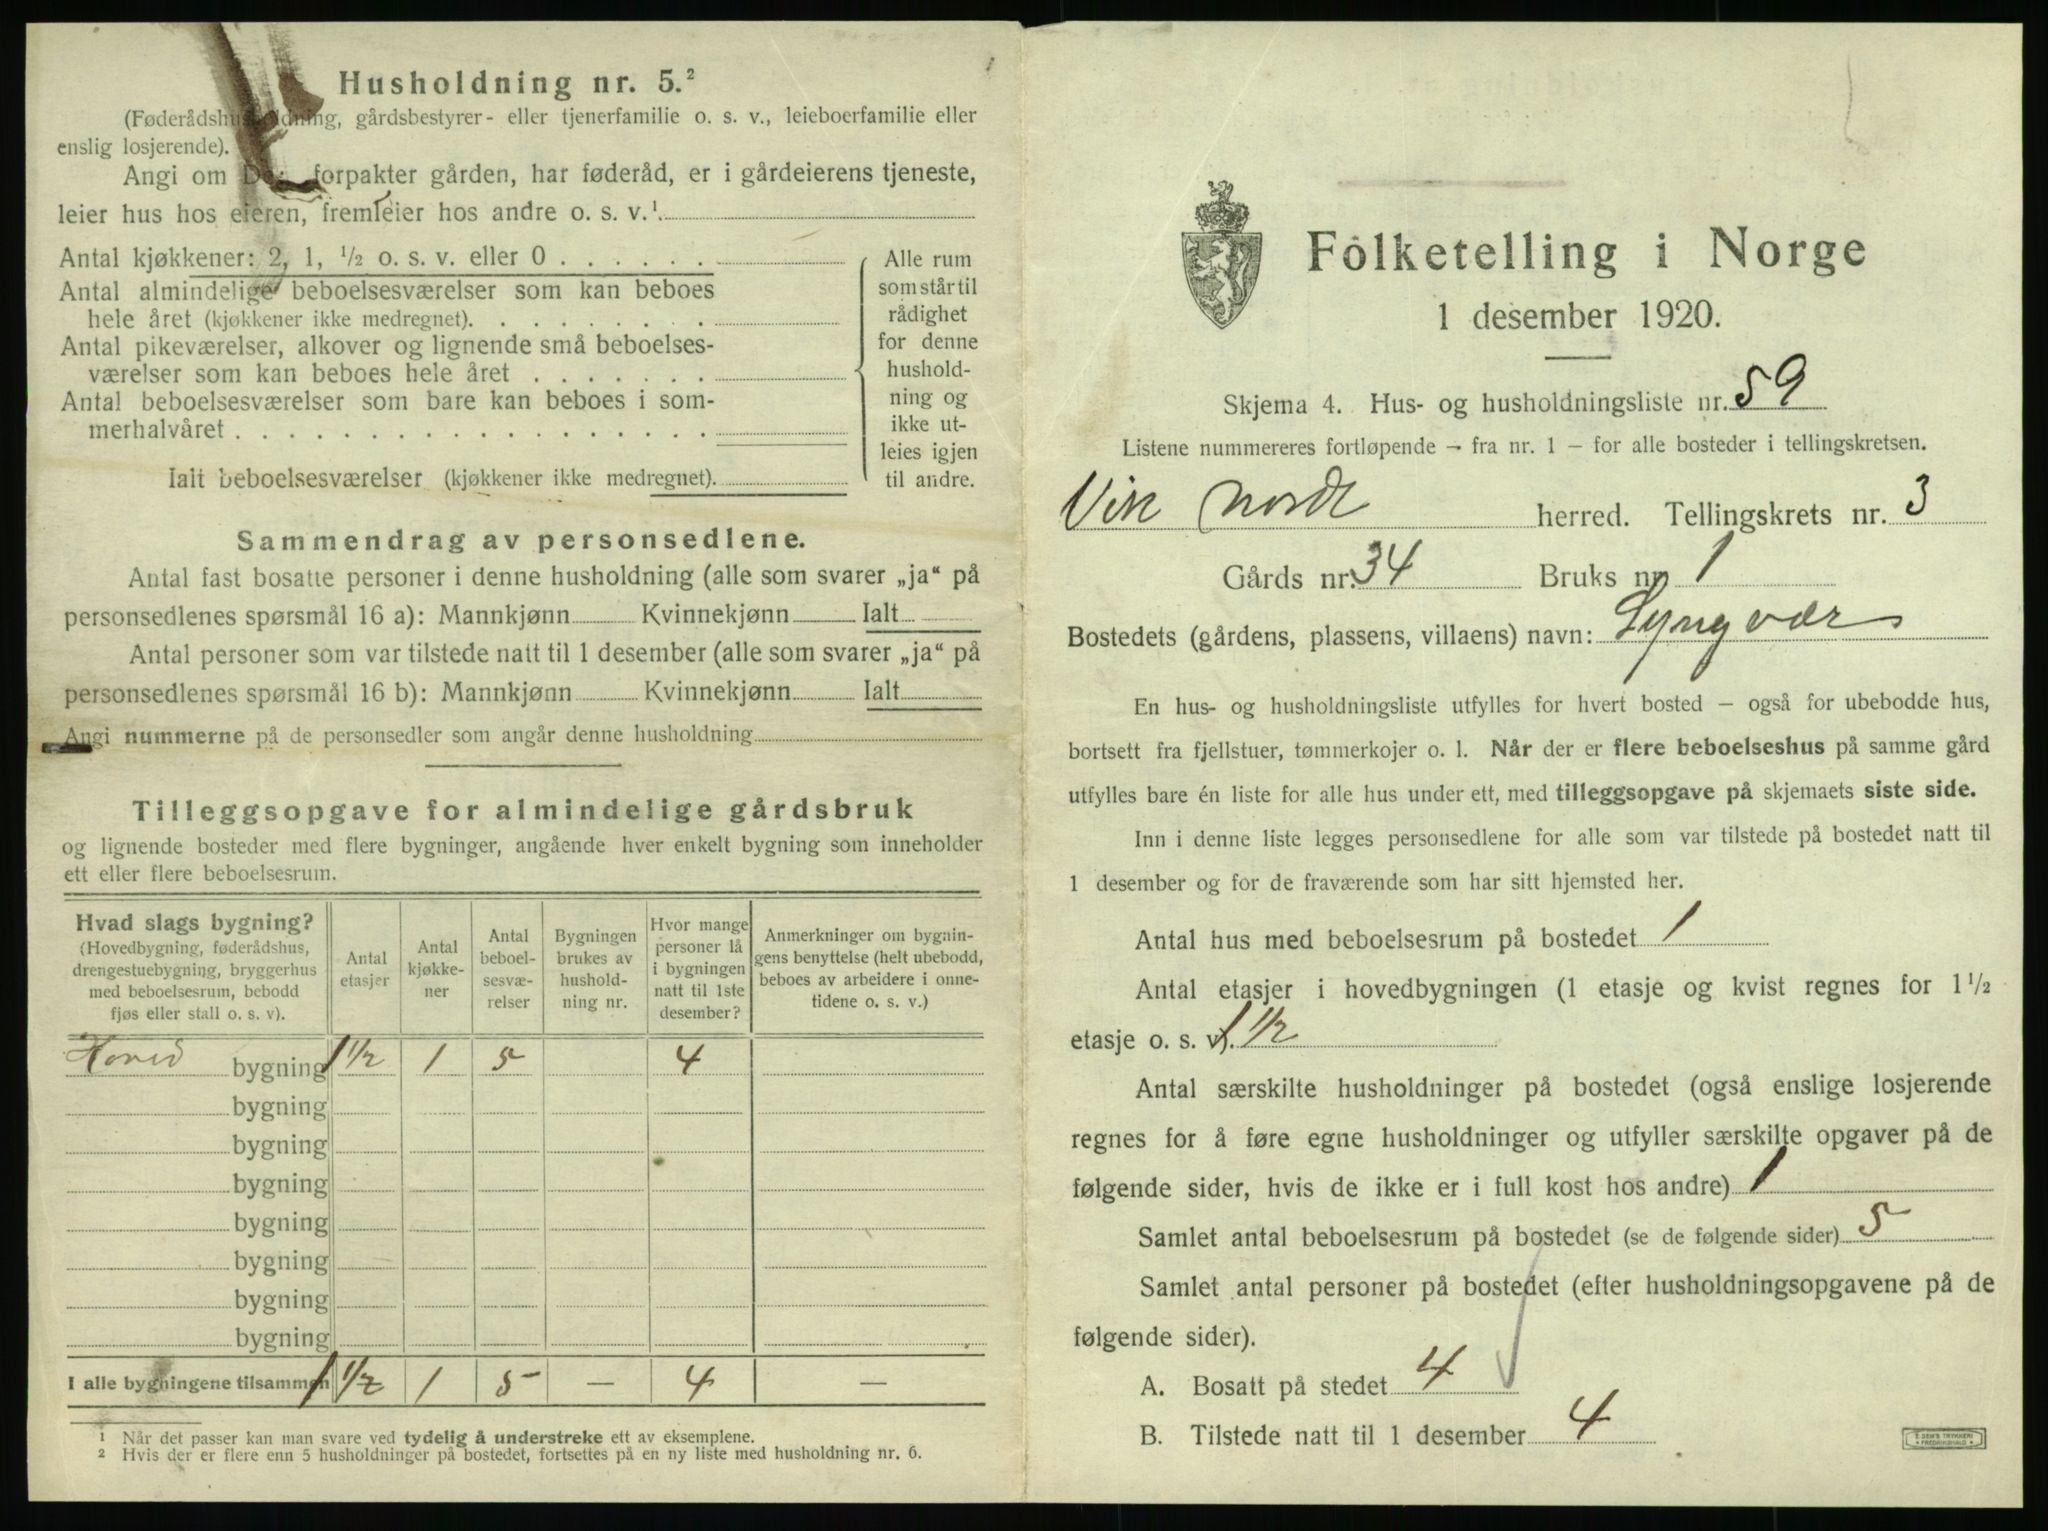 Husholdning nr. 5.²
(Føderådshusholdning, gårdsbestyrer- eller tjenerfamilie o. s. v., leieboerfamilie eller
enslig losjerende).
Angi om De forpakter gården, har føderåd, er i gårdeierens tjeneste,
leier hus hos eieren, fremleier hos andre o. s. v.¹
Antal kjøkkener: 2, 1, ½ o. s. v. eller 0 . . . . . .
Antal almindelige beboelsesværelser som kan beboes
hele året (kjøkkener ikke medregnet). . . . . . . . .
Antal pikeværelser, alkover og lignende små beboelses-
værelser som kan beboes hele året . . . . . . .
Antal beboelsesværelser som bare kan beboes i som-
merhalvåret . . . . . . . . . . . . . . . . . .
Ialt beboelsesværelser (kjøkkener ikke medregnet).
Alle rum
som står til
rådighet
for denne
hushold-
ning og
ikke ut-
leies igjen
til andre.
Sammendrag av personsedlene.
Antal fast bosatte personer i denne husholdning (alle som svarer „ja“ på
personsedlenes spørsmål 16 a): Mannkjønn Kvinnekjønn Ialt
Antal personer som var tilstede natt til 1 desember (alle som svarer „ja“ på
personsedlenes spørsmål 16 b): Mannkjønn Kvinnekjønn Ialt
Angi nummerne på de personsedler som angår denne husholdning
Tilleggsopgave for almindelige gårdsbruk
og lignende bosteder med flere bygninger, angående hver enkelt bygning som inneholder
ett eller flere beboelsesrum.
Hvad slags bygning?
(Hovedbygning, føderådshus,
drengestuebygning, bryggerhus
med beboelsesrum, bebodd
fjøs eller stall o. s. v).
Antal
etasjer
Antal
kjøkke-
ner
Antal
beboel-
sesvæ-
relser
Bygningen
brukes av
hushold-
ning nr.
Hvor mange
personer lå
i bygningen
natt til 1ste
desember?
Anmerkninger om bygnin-
gens benyttelse (helt ubebodd,
beboes av arbeidere i onne-
tidene o. s. v.)
Hoved bygning 1 ½ 1 5 4
bygning
bygning
bygning
bygning
bygning
bygning
bygning
I alle bygningene tilsammen 1 ½ 1 5 — 4 —
¹ Når det passer kan man svare ved tydelig å understreke ett av eksemplene.
² Hvis der er flere enn 5 husholdninger på bostedet, fortsettes på en ny liste med husholdning nr. 6.
Folketelling i Norge
1 desember 1920.
Skjema 4. Hus- og husholdningsliste nr. 59
Listene nummereres fortløpende – fra nr. 1 – for alle bosteder i tellingskretsen.
Vik Nordl herred. Tellingskrets nr. 3
Gårds nr. 34 Bruks nr. 1
Bostedets (gårdens, plassens, villaens) navn: Lyngvær
En hus- og husholdningsliste utfylles for hvert bosted – også for ubebodde hus,
bortsett fra fjellstuer, tømmerkojer o. l. Når der er flere beboelseshus på samme gård
utfylles bare én liste for alle hus under ett, med tilleggsopgave på skjemaets siste side.
Inn i denne liste legges personsedlene for alle som var tilstede på bostedet natt til
1 desember og for de fraværende som har sitt hjemsted her.
Antal hus med beboelsesrum på bostedet 1
Antal etasjer i hovedbygningen (1 etasje og kvist regnes for 1 ½
etasje o. s. v). 1 ½
Antal særskilte husholdninger på bostedet (også enslige losjerende
regnes for å føre egne husholdninger og utfyller særskilte opgaver på de
følgende sider, hvis de ikke er i full kost hos andre) 1
Samlet antal beboelsesrum på bostedet (se de følgende sider) 5
Samlet antal personer på bostedet (efter husholdningsopgavene på de
følgende sider).
A. Bosatt på stedet 4
B. Tilstede natt til 1 desember 4